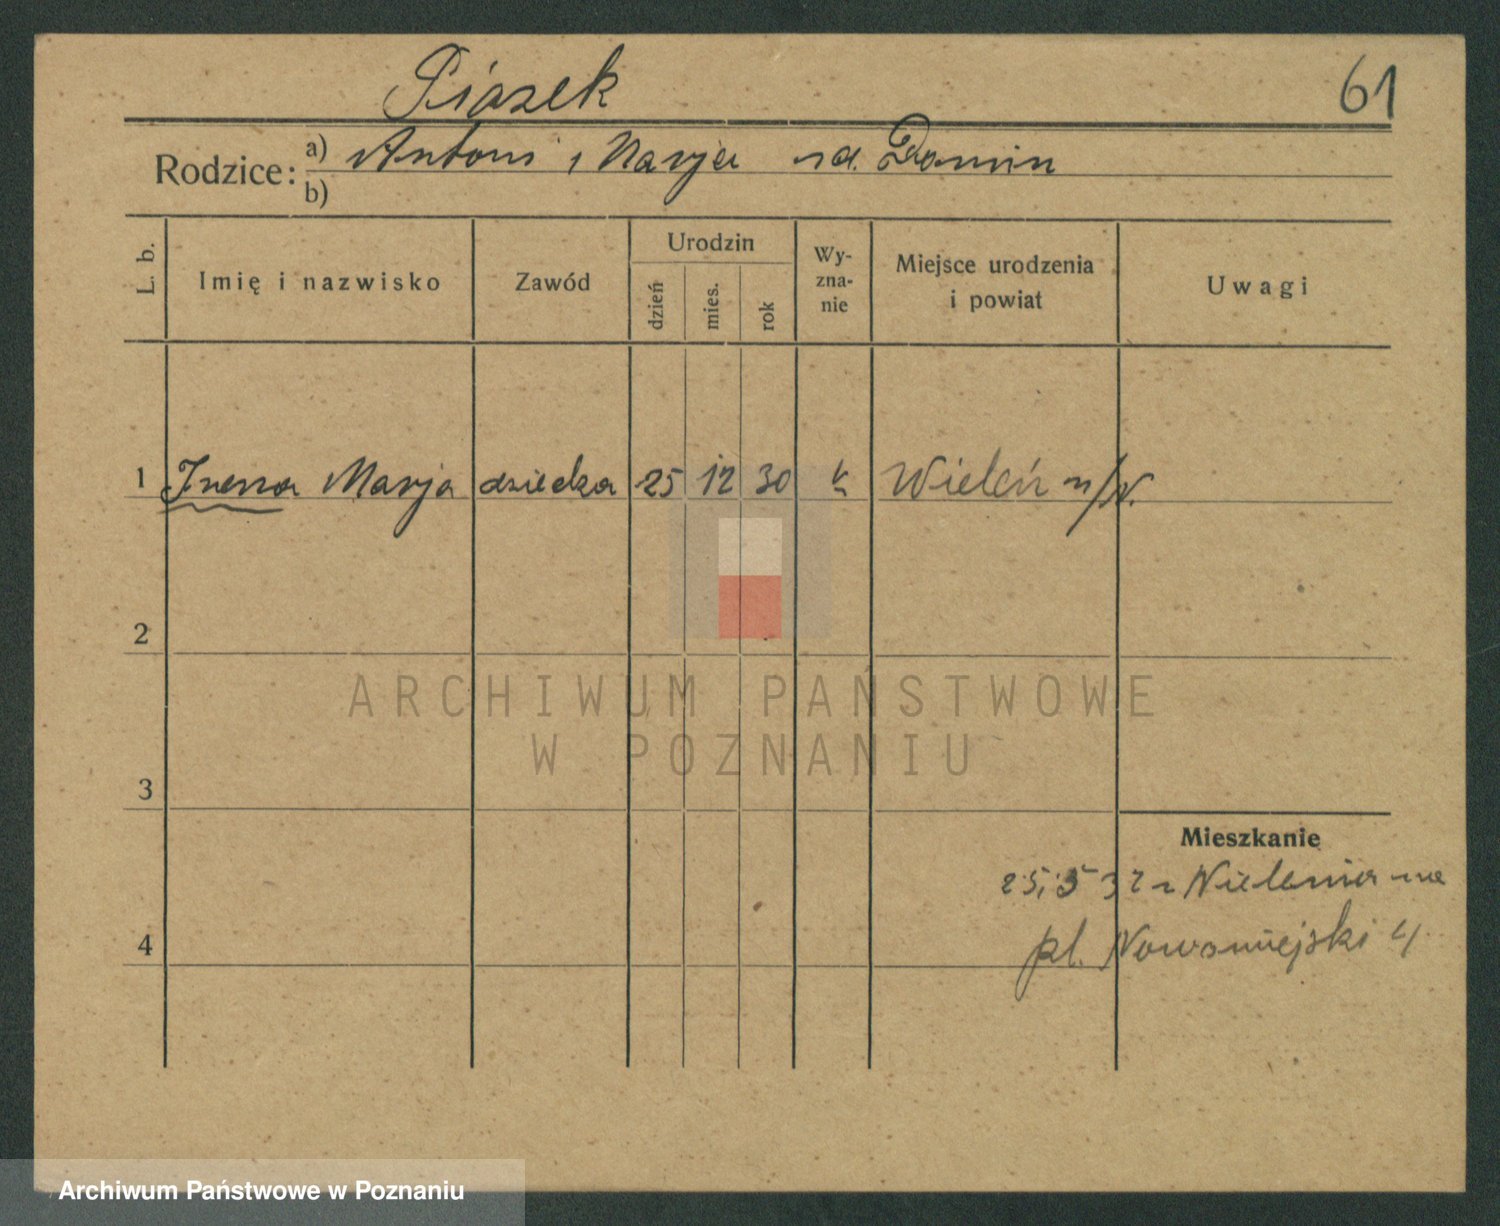 Piasek
61
Rodzice: a) Antoni i Marja rd. Damin
b)
L. b.
Imię i nazwisko
Zawód
Urodzin
dzień
mies.
rok
Wy-
zna-
nie
Miejsce urodzenia
i powiat
Uwagi
1 Irena Marja dziecko 25 12 30 k Wieleń n/N.
2
ARCHIWUM PAŃSTWOWE
W POZNANIU
3
Mieszkanie
25,5 32 z Wielenia na
pl. Nowomiejski 4
4
Archiwum Państwowe w Poznaniu